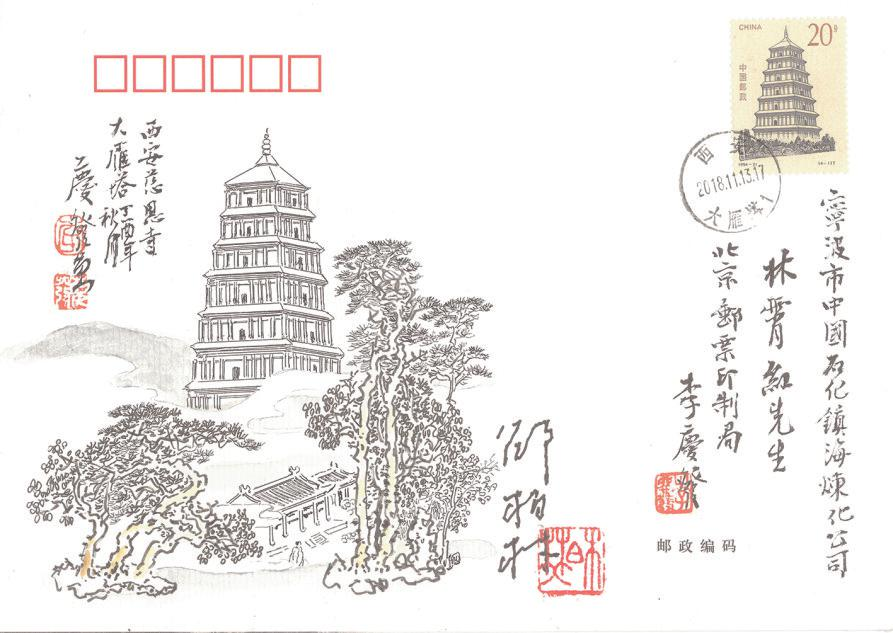 CHINA
20分
中国邮政
1994-21
西安
2018.11.13.17
大雁塔1
西安慈恩寺
大雁塔丁酉年
秋月
寧波市中國石化鎮海煉化公司
林霄紅先生
北京郵票印制局
李慶發
邮政编码